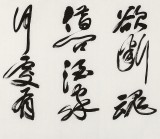 欲斷魂
借問酒家
何處有